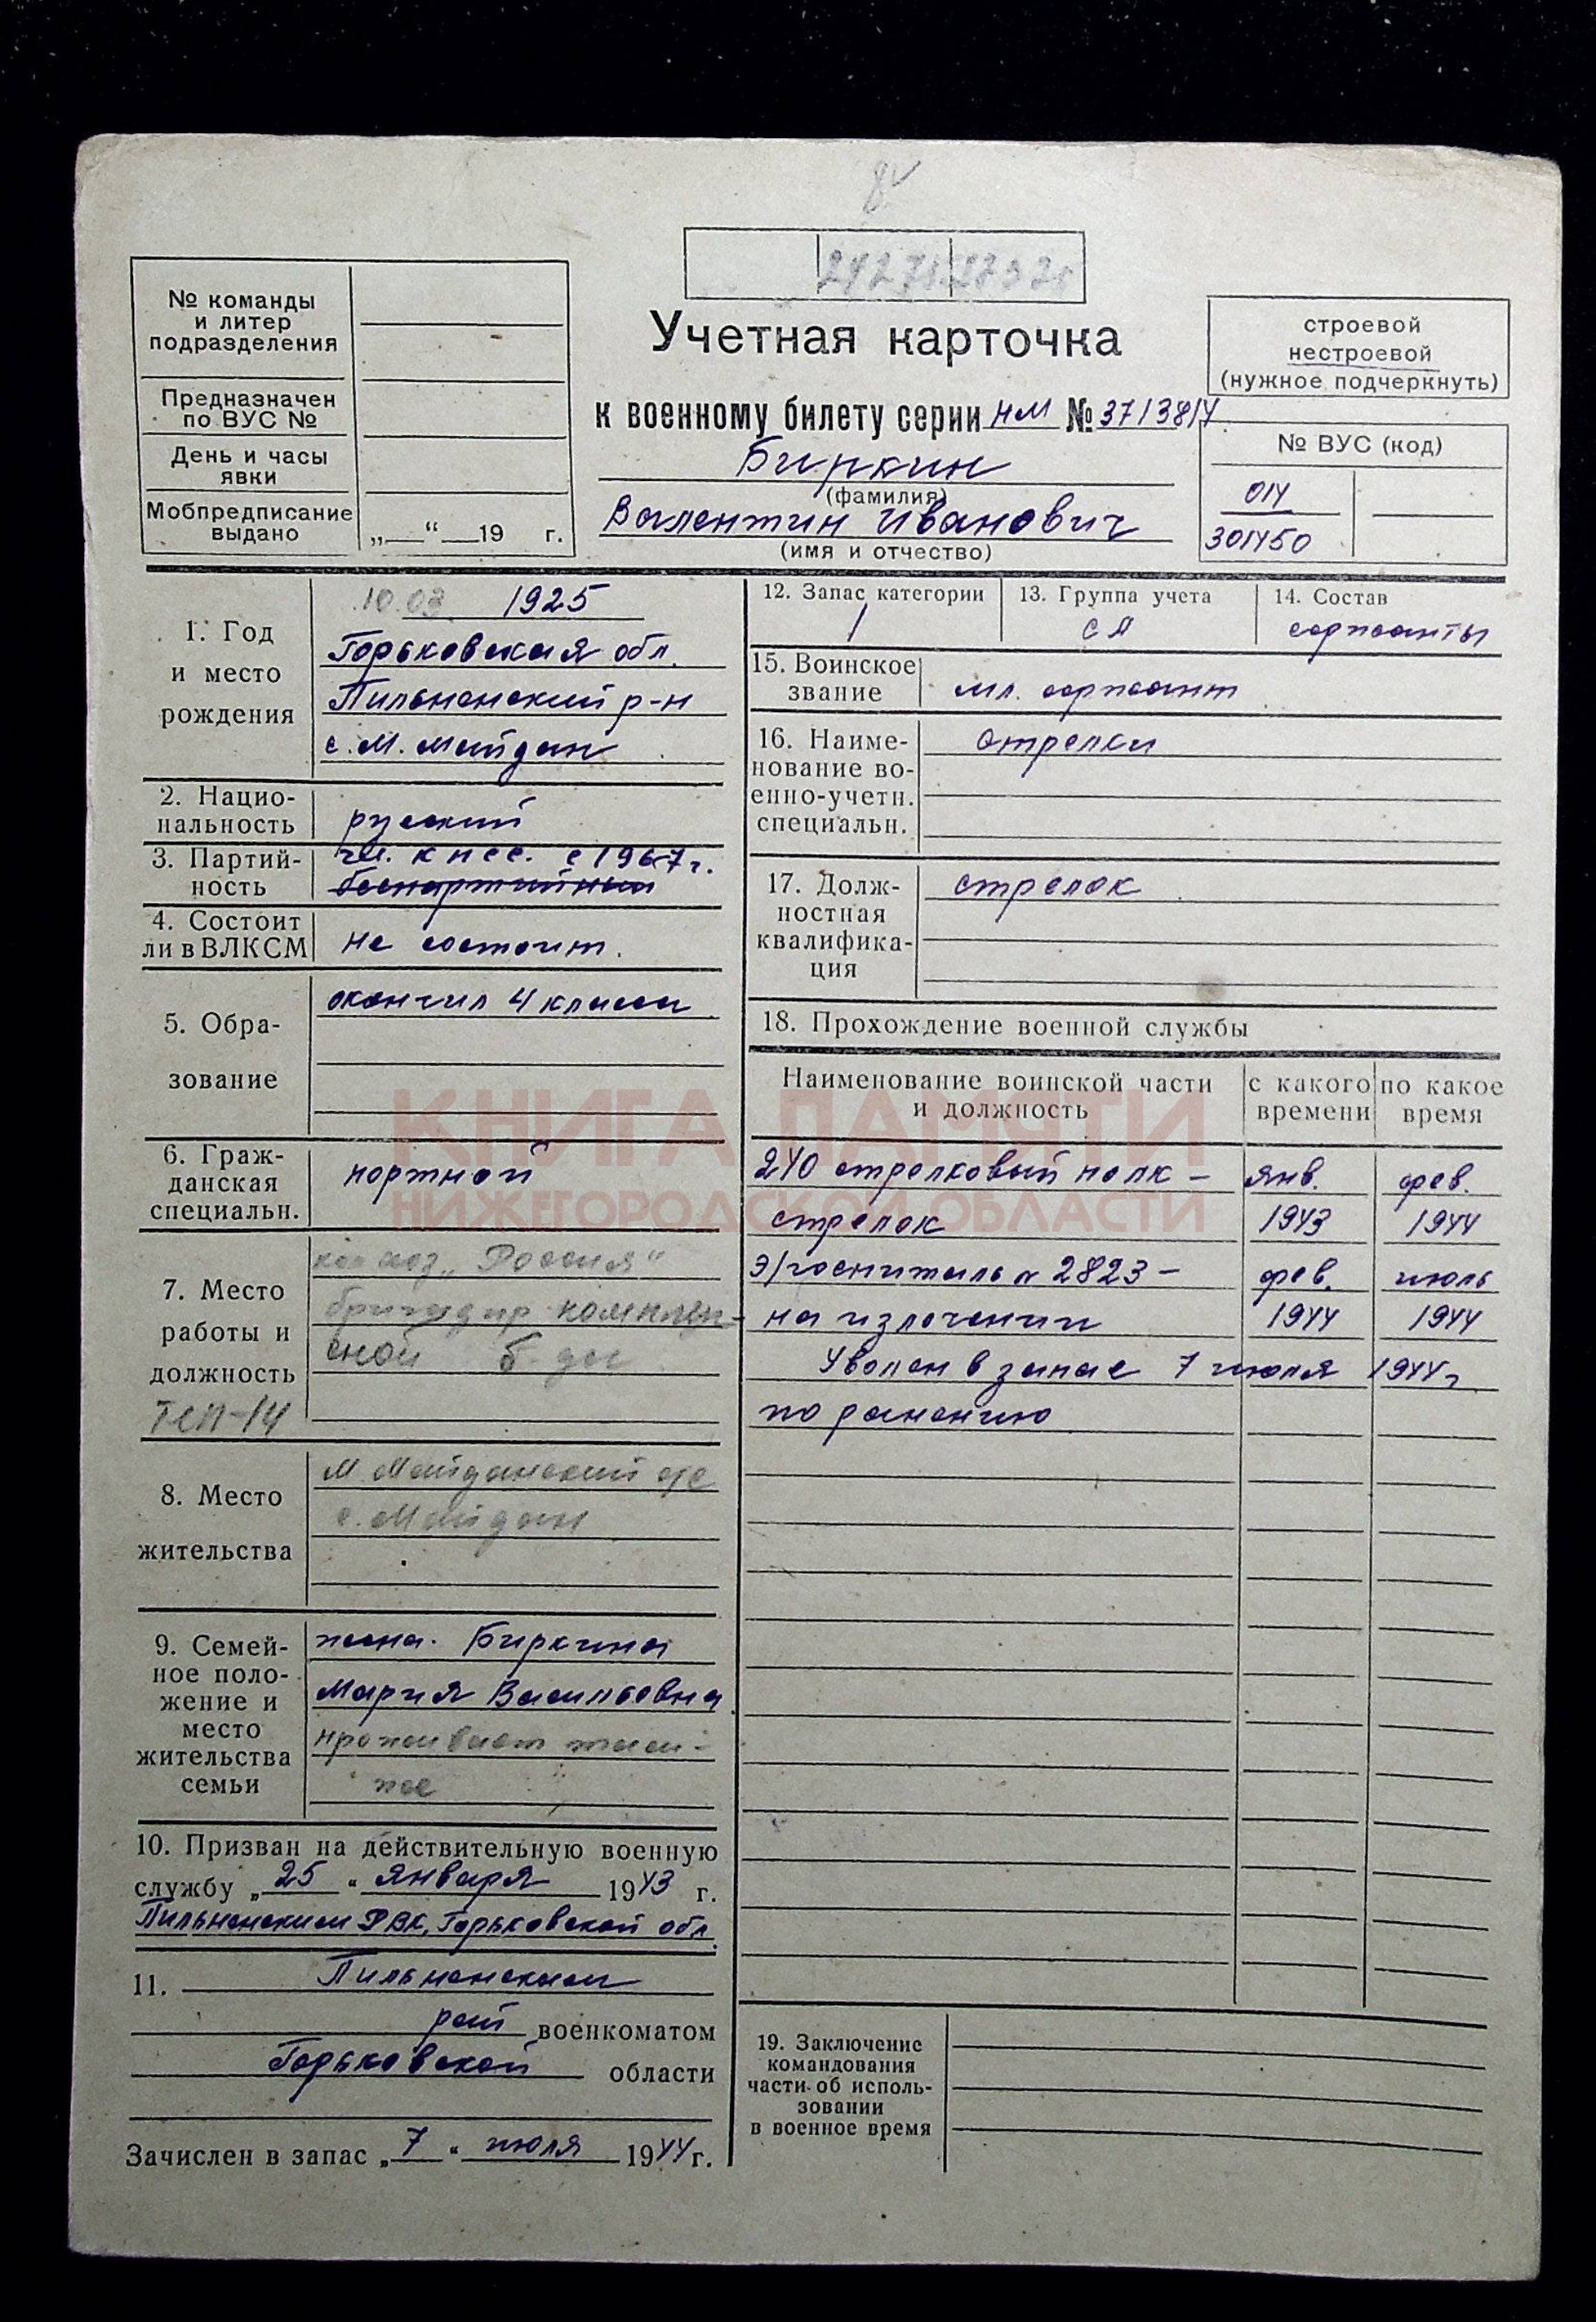 № команды
и литер
подразделения
Предназначен
по ВУС №
День и часы
явки
Мобпредписание
выдано
„ “ 19 г.
Учетная карточка
к военному билету серии НМ № 3713814
Биркин
(фамилия)
Валентин Иванович
(имя и отчество)
строевой
нестроевой
(нужное подчеркнуть)
№ ВУС (код)
014
301450
1. Год
и место
рождения
10.03. 1925
Горьковская обл.
Пильненский р-н
с. М. Майдан
2. Нацио-
нальность
русский
3. Партий-
ность
чл. КПСС. с 1967 г.
беспартийный
4. Состоит
ли в ВЛКСМ
не состоит.
5. Обра-
зование
окончил 4 класса
6. Граж-
данская
специальн.
портной
7. Место
работы и
должность
ТСП-14
колхоз „Россия“
бригадир комплек-
сной б-ды
8. Место
жительства
М. Майданский с/с
с. Майдан
9. Семей-
ное поло-
жение и
место
жительства
семьи
жена. Биркина
Мария Васильевна
проживает там-
же
10. Призван на действительную военную
службу „25“ января 1943 г.
Пильненским РВК, Горьковской обл.
11. Пильненским
рай военкоматом
Горьковской области
Зачислен в запас „7“ июля 1944 г.
12. Запас категории
1
13. Группа учета
СА
14. Состав
сержанты
15. Воинское
звание
мл. сержант
16. Наиме-
нование во-
енно-учетн.
специальн.
стрелки
17. Долж-
ностная
квалифика-
ция
стрелок
18. Прохождение военной службы
Наименование воинской части
и должность
с какого
времени
по какое
время
240 стрелковый полк – янв. фев.
стрелок 1943 1944
Э/госпиталь № 2823 – фев. июль
на излечении 1944 1944
Уволен в запас 7 июля 1944 г.
по ранению
19. Заключение
командования
части об исполь-
зовании
в военное время
КНИГА ПАМЯТИ
НИЖЕГОРОДСКОЙ ОБЛАСТИ